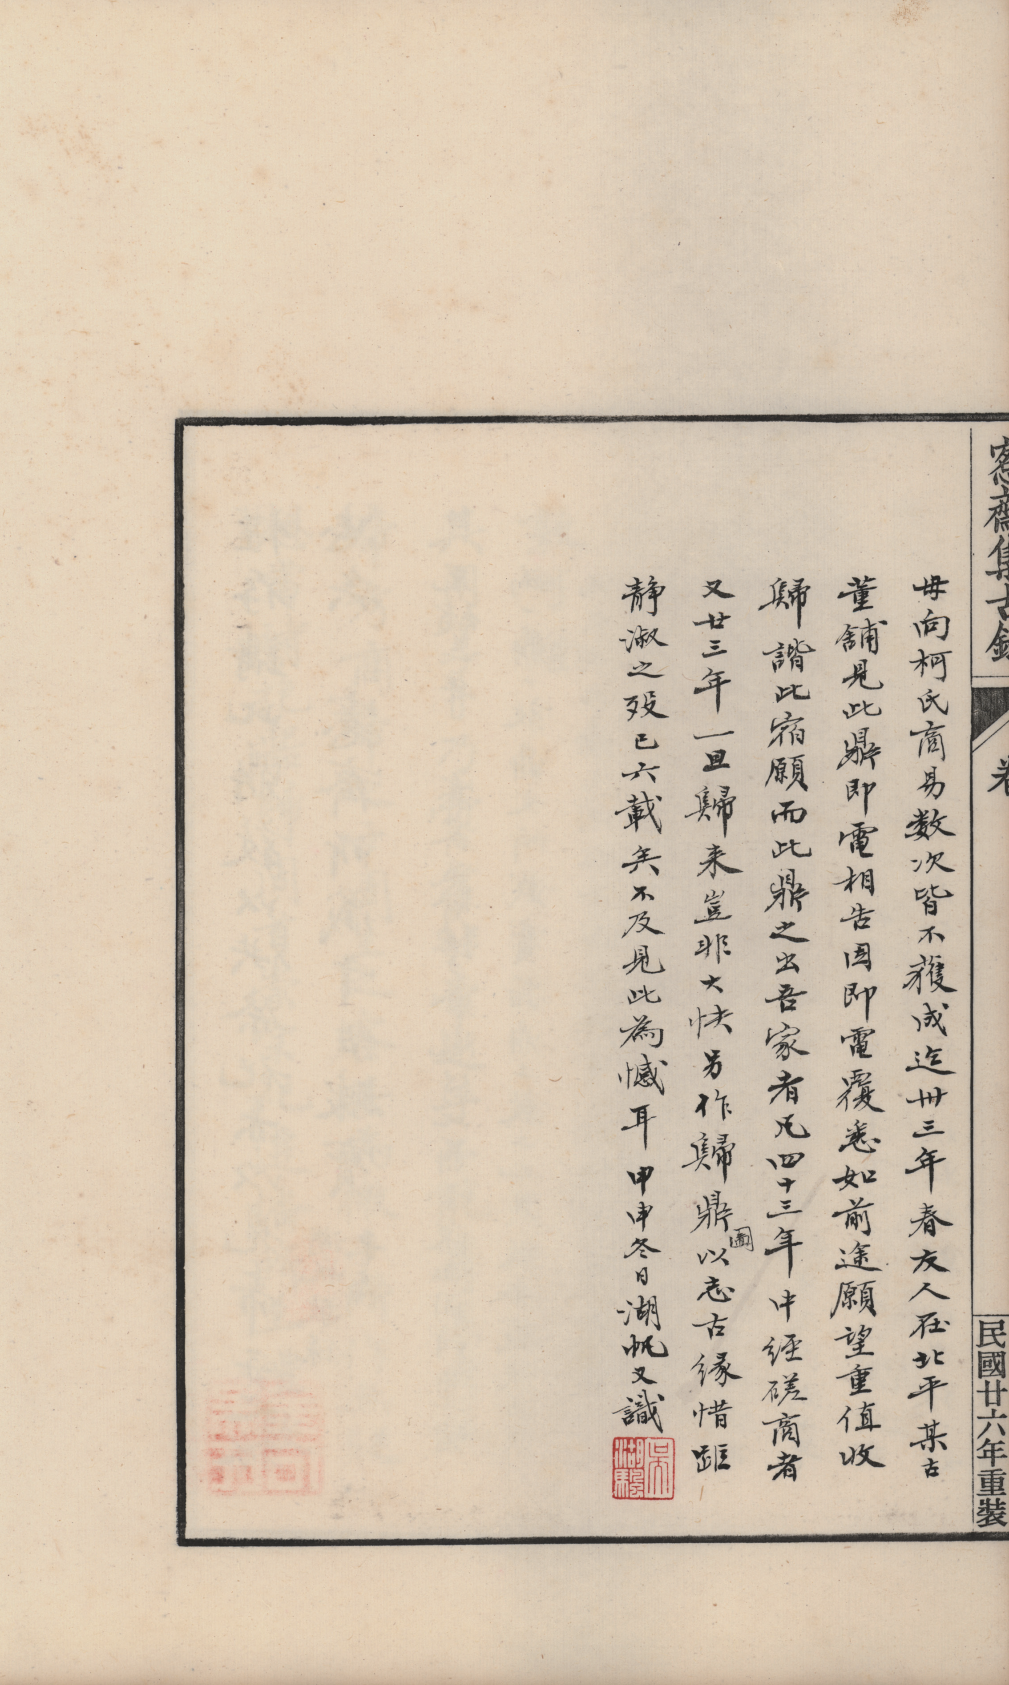 愙齋集古錄
民國廿六年重裝
毋向柯氏商易數次皆不獲成迄卅三年春友人在北平某古
董舖見此鼎即電相告因即電覆悉如前途願望重值收
歸諧此宿願而此鼎之出吾家者凡四十三年中經磋商者
又廿三年一旦歸來豈非大快另作歸鼎圖以志古緣惜距
靜淑之歿已六載矣不及見此為憾耳甲申冬日湖帆又識
吳湖颿